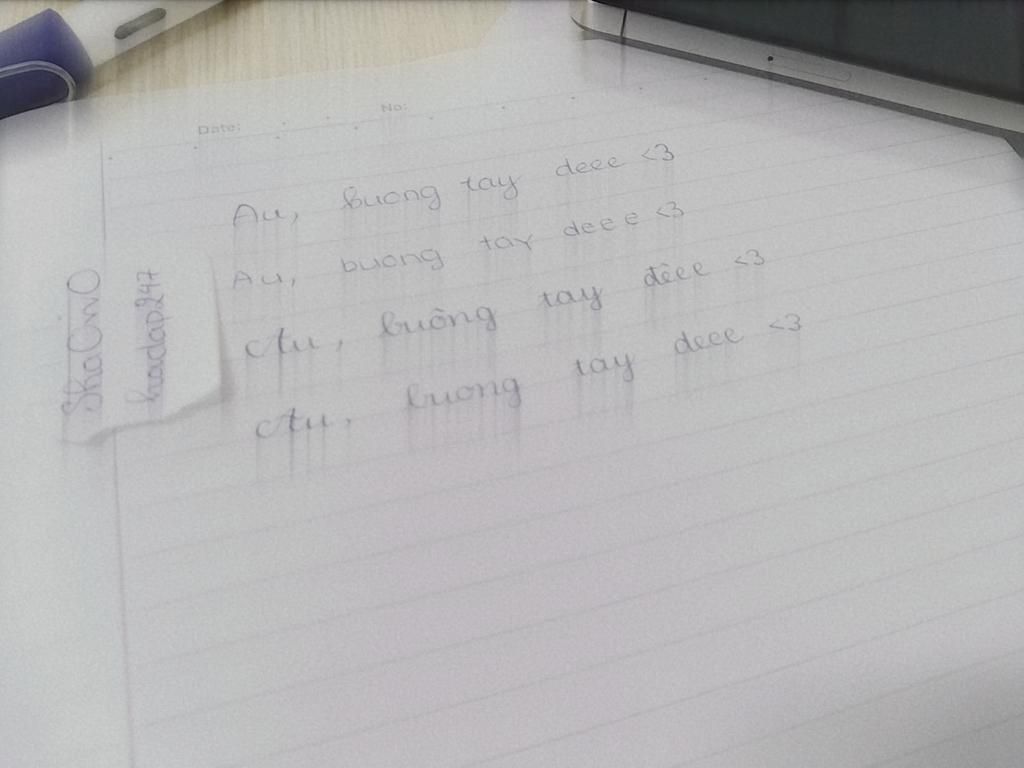 Date: No:
Au, buong tay deee <3
Au, buong tay deee <3
Au, buông tay đêee <3
Au, buong tay deee <3
SkaCinO
hoadap247